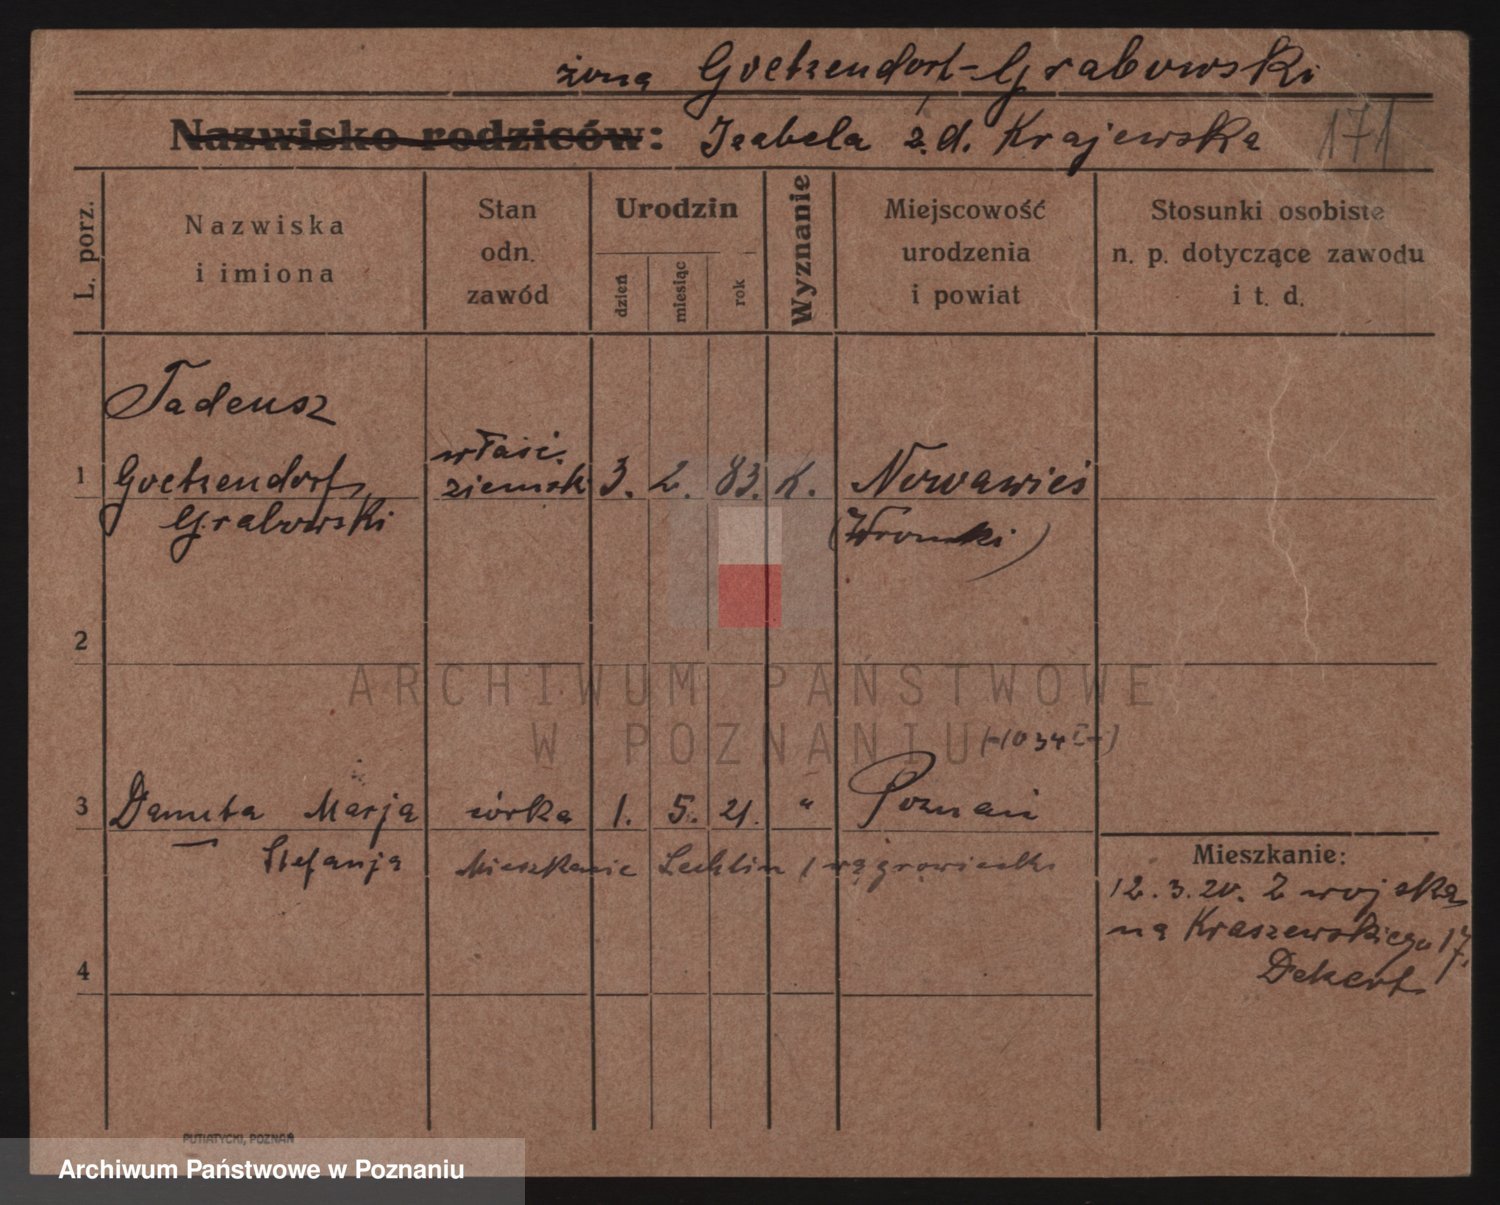 żona Goetzendorf-Grabowski
Nazwisko rodziców: Izabela z.d. Krajewska 171
L. porz.
Nazwiska
i imiona
Stan
odn.
zawód
Urodzin
dzień
miesiąc
rok
Wyznanie
Miejscowość
urodzenia
i powiat
Stosunki osobiste
n. p. dotyczące zawodu
i t. d.
Tadeusz
1 Goetzendorf właśc. ziemsk 3. 2. 83. K. Nowawieś
Grabowski (Wronki)
2
ARCHIWUM PAŃSTWOWE
W POZNANIU
3 Danuta Marja córka 1. 5. 21. " Poznań
Stefanja Mieszkanie Lechlin / wągrowiecki
Mieszkanie:
12.3.20. Z wojska
na Kraszewskiego 17.
Dekert
4
PUTIATYCKI, POZNAŃ
Archiwum Państwowe w Poznaniu